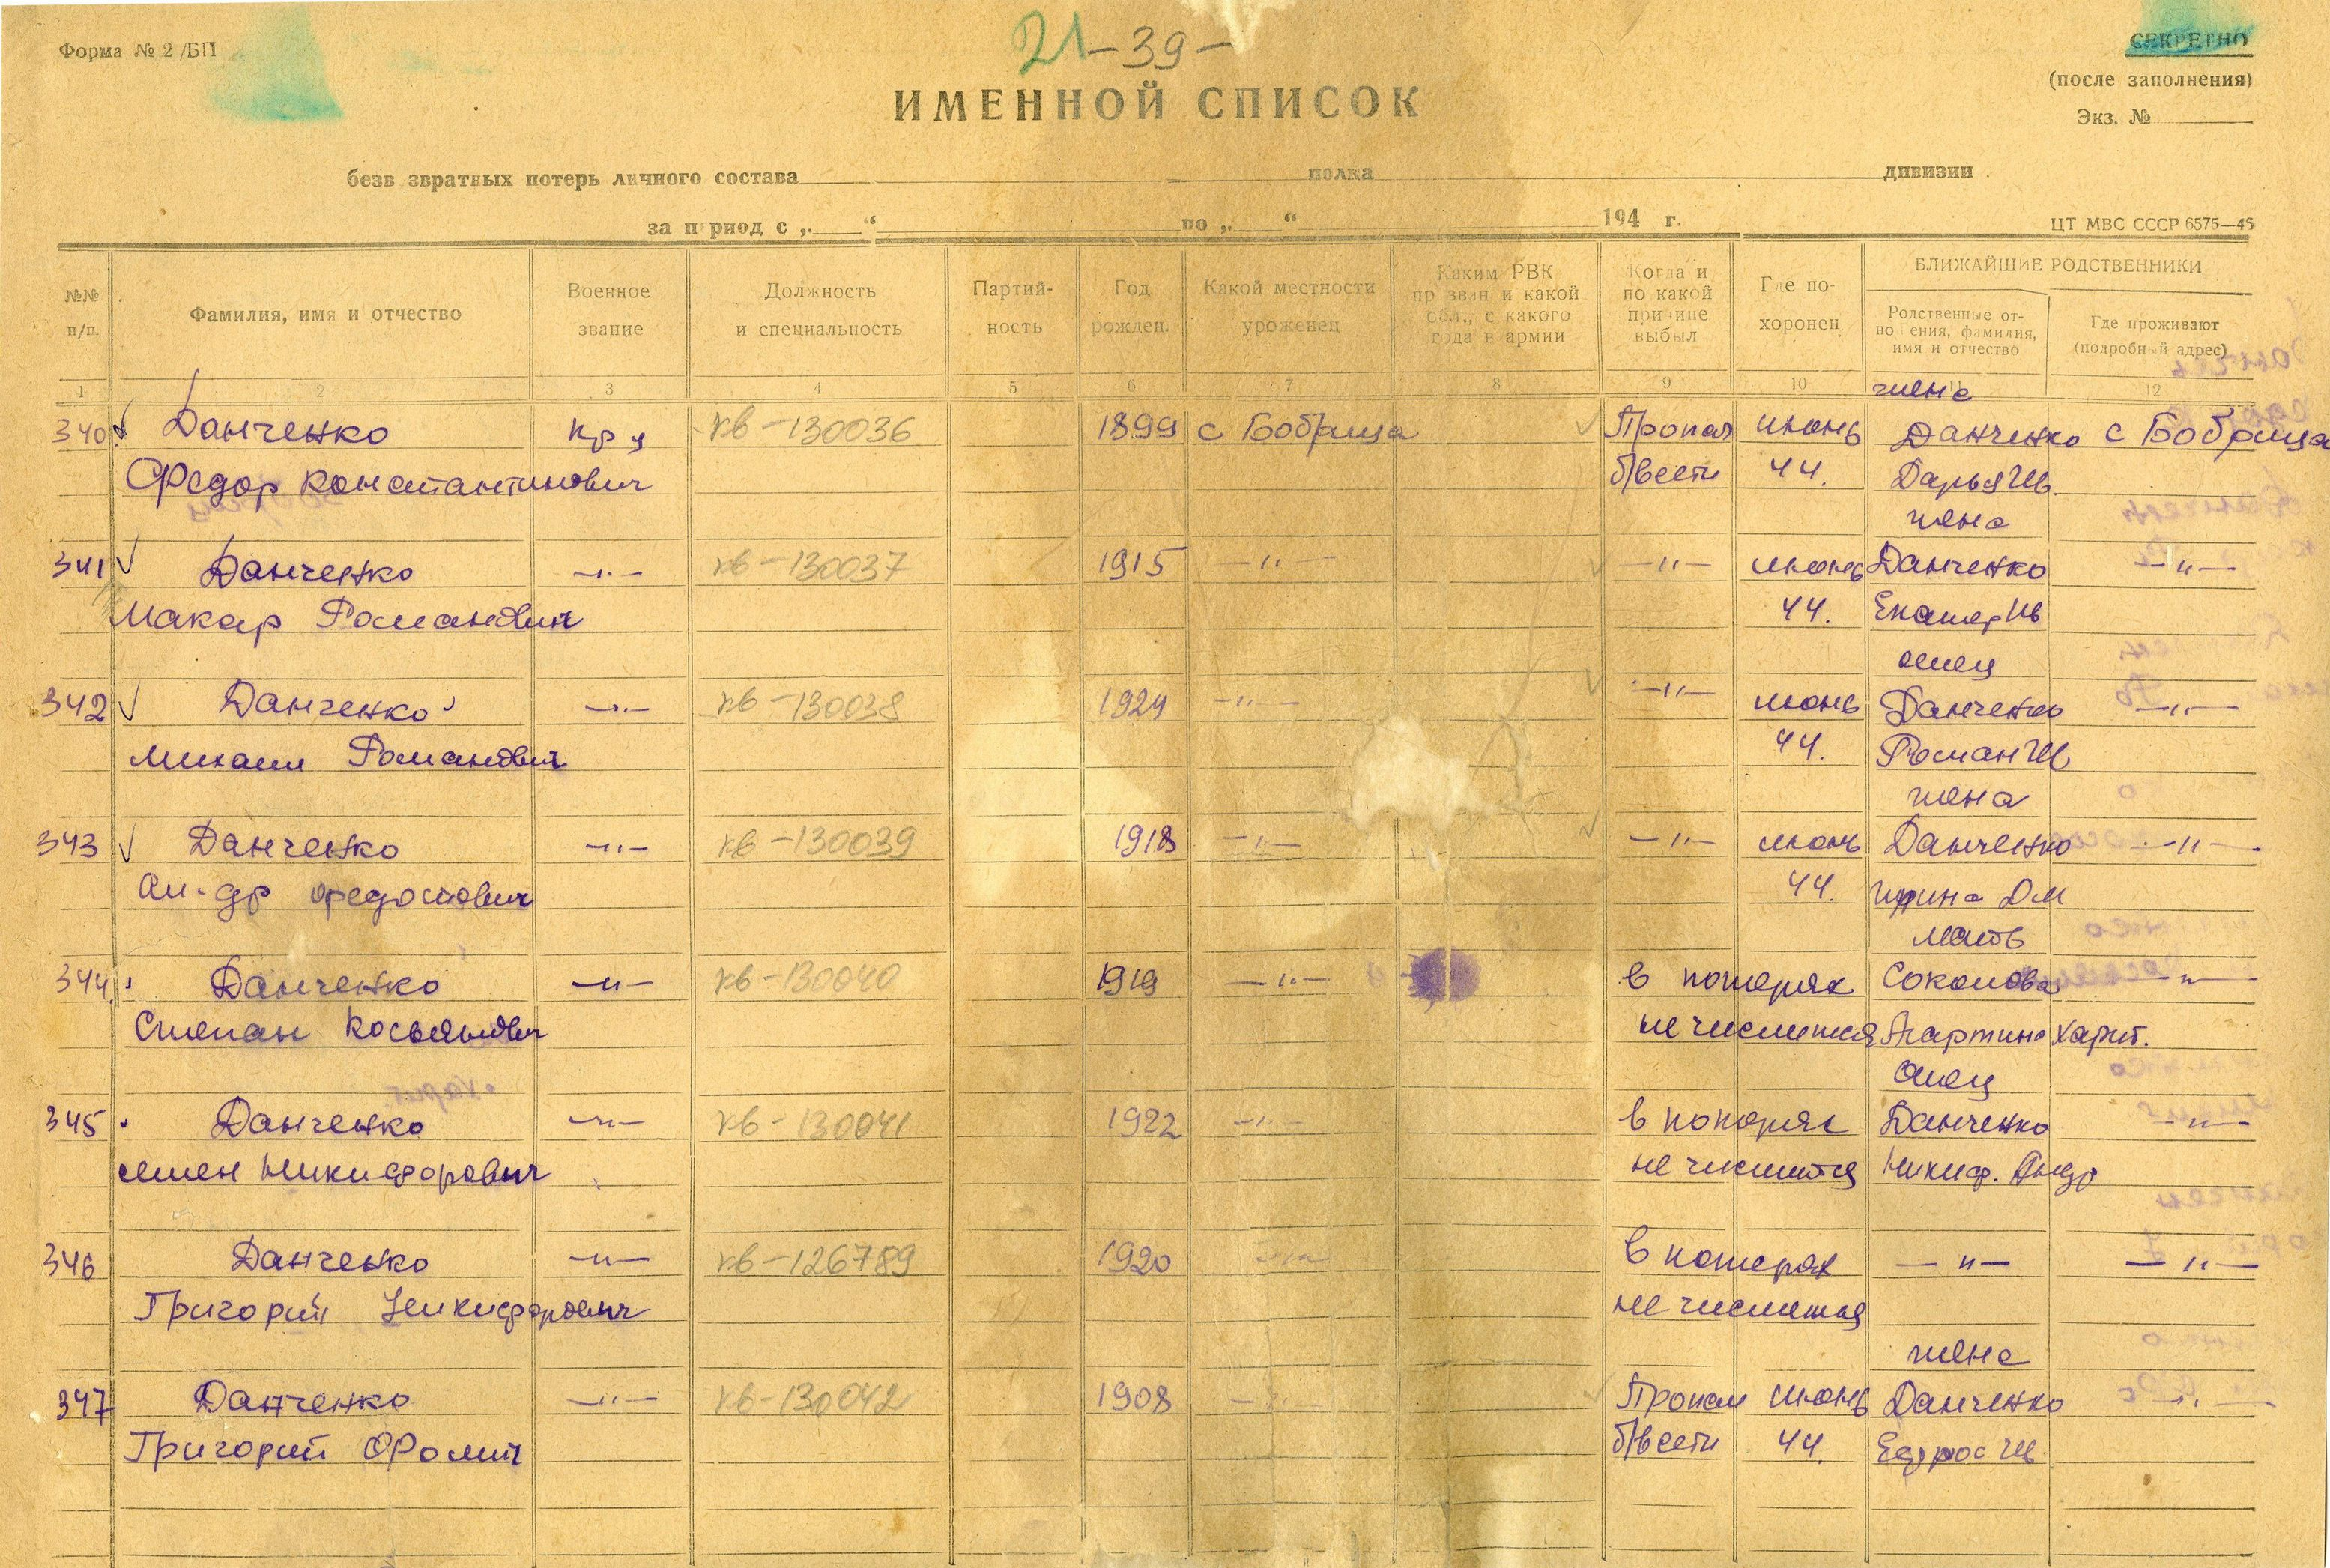 Форма № 2 /БП
21 -39-
СЕКРЕТНО
(после заполнения)
Экз. №
ИМЕННОЙ СПИСОК
безв звратных потерь личного состава полка дивизии
за п риод с „ “ по „ “ 194 г.
ЦТ МВС СССР 6575—45
№№ п/п.
Фамилия, имя и отчество
Военное звание
Должность и специальность
Партий- ность
Год рожден.
Какой местности уроженец
Каким РВК пр зван и какой обл., с какого года в армии
Когда и по какой причине выбыл
Где по- хоронен
БЛИЖАЙШИЕ РОДСТВЕННИКИ
Родственные от- но ения, фамилия, имя и отчество
Где проживают (подробный адрес)
1 2 3 4 5 6 7 8 9 10 11 12
жена
340 Данченко кр ц кв-130036 1899 с Бобрица Пропал июнь Данченко с Бобрица
Федор Константинович б/вести 44. Дарья Ив.
жена
341 Данченко —"— кв-130037 1915 —"— —"— июнь Данченко —"—
Макар Романович 44. Екатер Ив
отец
342 Данченко —"— кв-130038 1924 —"— —"— июнь Данченко —"—
Михаил Романович 44. Роман Ив
жена
343 Данченко —"— кв-130039 1918 —"— —"— июнь Данченко —"—
Ал-др Федотович 44. Ирина Дм
мать
344 Данченко —"— кв-130040 1919 —"— в потерях Соколова —"—
Степан Косьянович не числится Харит.
Отец
345 Данченко —"— кв-130041 1922 —"— в потерях Данченко —"—
Семен Никифорович не числится Никиф. Андр
346 Данченко —"— кв-126789 1920 —"— в потерях —"— —"—
Григорий Никифорович не числится
жена
347 Данченко —"— кв-130042 1908 —"— Пропал июнь Данченко —"—
Григорий б/вести 44.